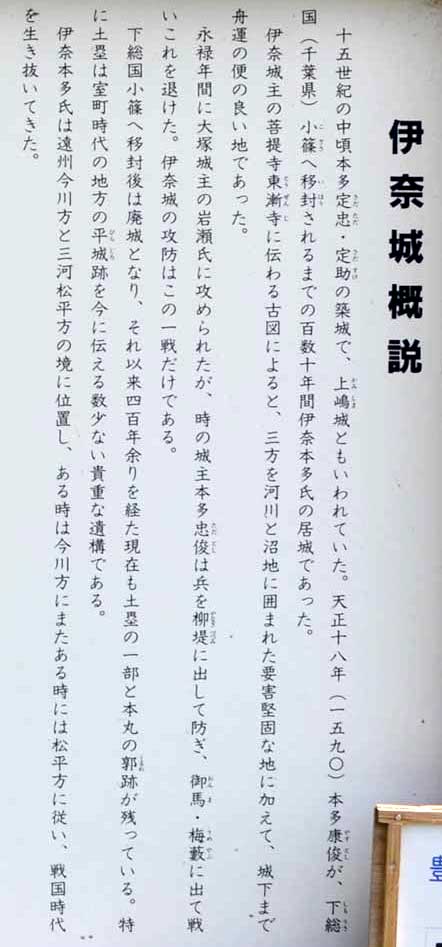 伊奈城概説
十五世紀の中頃本多定忠・定助の築城で、上嶋城ともいわれていた。天正十八年（一五九〇）本多康俊が、下総
国（千葉県）小篠へ移封されるまでの百数十年間伊奈本多氏の居城であった。
伊奈城主の菩提寺東漸寺に伝わる古図によると、三方を河川と沼地に囲まれた要害堅固な地に加えて、城下まで
舟運の便の良い地であった。
永禄年間に大塚城主の岩瀬氏に攻められたが、時の城主本多忠俊は兵を柳堤に出して防ぎ、御馬・梅藪に出て戦
いこれを退けた。伊奈城の攻防はこの一戦だけである。
下総国小篠へ移封後は廃城となり、それ以来四百年余りを経た現在も土塁の一部と本丸の郭跡が残っている。特
に土塁は室町時代の地方の平城跡を今に伝える数少ない貴重な遺構である。
伊奈本多氏は遠州今川方と三河松平方の境に位置し、ある時は今川方にまたある時には松平方に従い、戦国時代
を生き抜いてきた。
豊